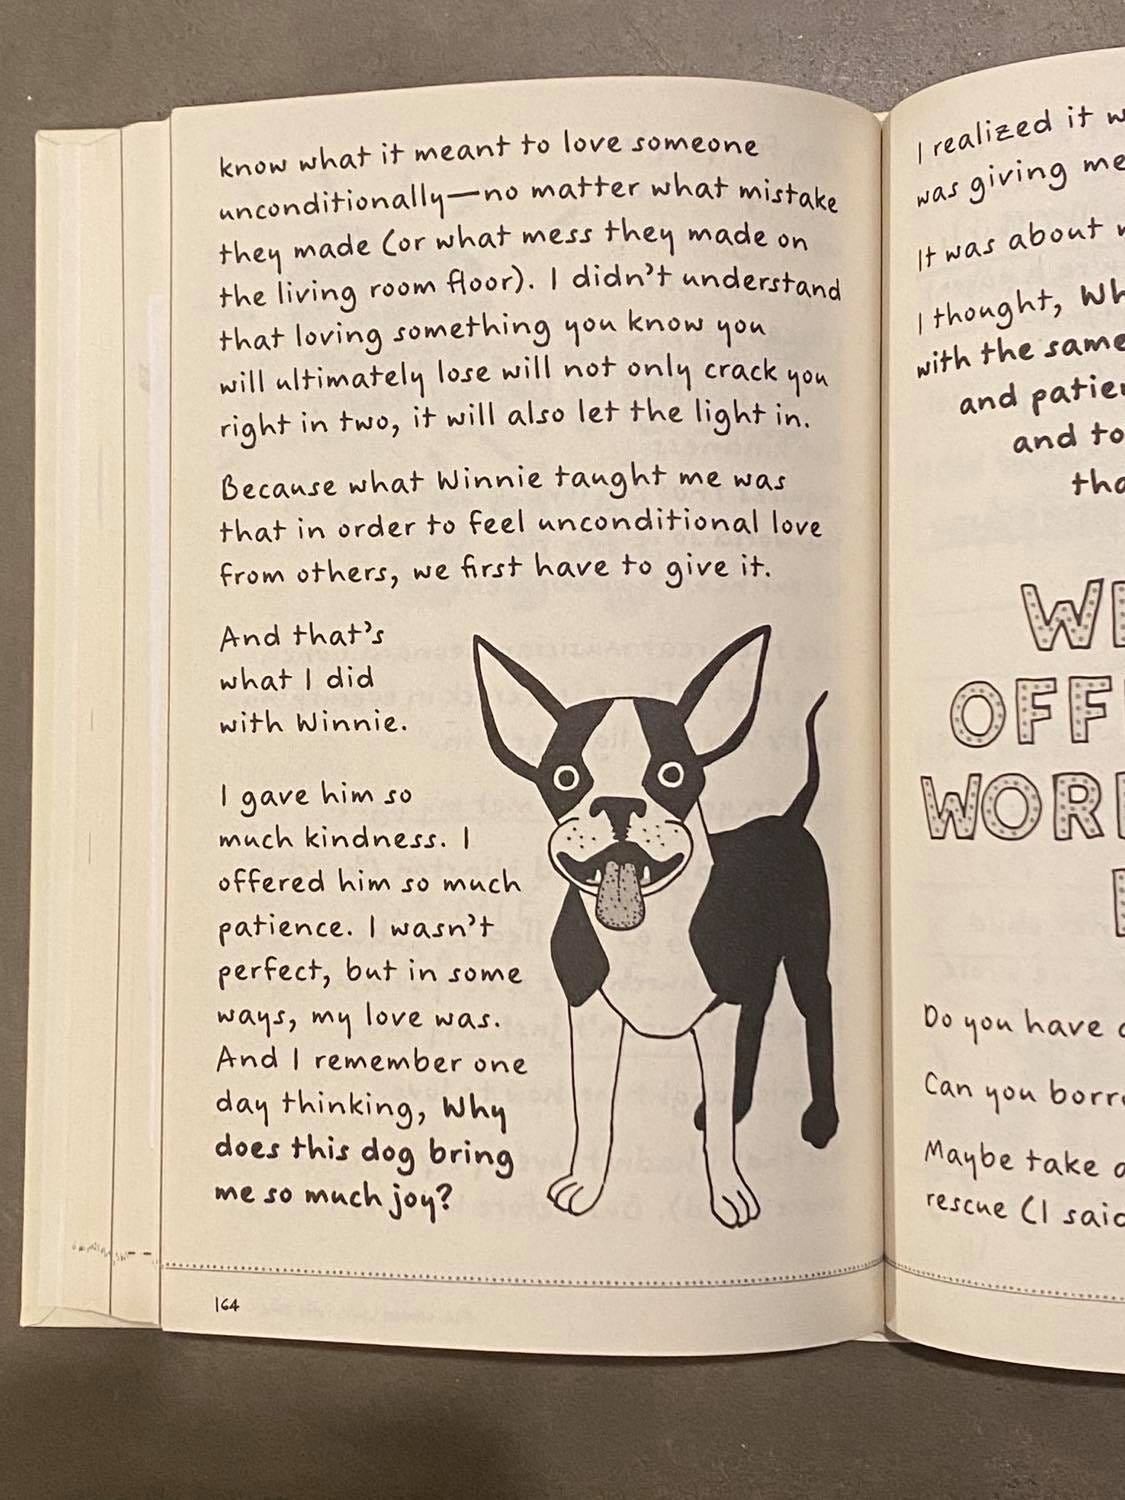 know what it meant to love someone
unconditionally—no matter what mistake
they made (or what mess they made on
the living room floor). I didn't understand
that loving something you know you
will ultimately lose will not only crack you
right in two, it will also let the light in.
Because what Winnie taught me was
that in order to feel unconditional love
from others, we first have to give it.
And that's
what I did
with Winnie.
I gave him so
much kindness. I
offered him so much
patience. I wasn't
perfect, but in some
ways, my love was.
And I remember one
day thinking, Why
does this dog bring
me so much joy?
164
I realized it
was giving me
It was about
I thought,
with the same
and
and to
WE
OFF
WOR
Do you have
Can you
Maybe take
rescue (I said